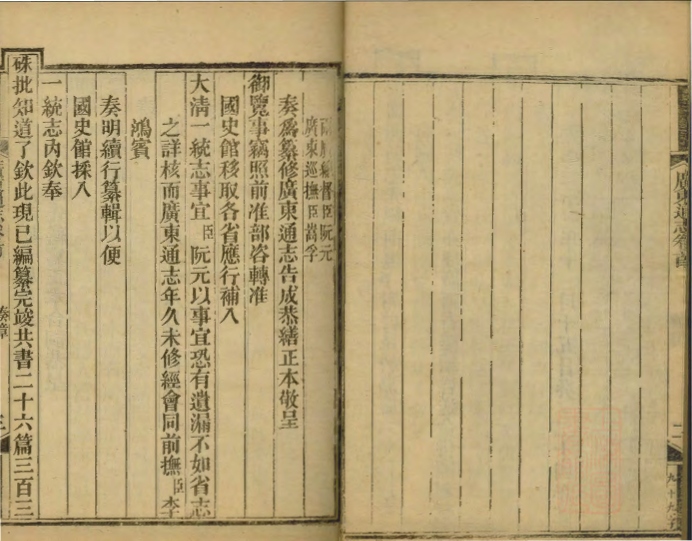 廣東通志卷首
二
九十九子
兩廣總督臣阮元
廣東巡撫臣嵩孚
奏爲纂修廣東通志告成恭繕正本敬呈
御覽事竊照前准部咨轉准
國史館移取各省應行補入
大清一統志事宜臣阮元以事宜恐有遺漏不如省志
之詳核而廣東通志年久未修經會同前撫臣李
鴻賓
奏明續行纂輯以便
國史館採入
一統志內欽奉
硃批知道了欽此現已編纂完竣共書二十六篇三百三
奏章
三